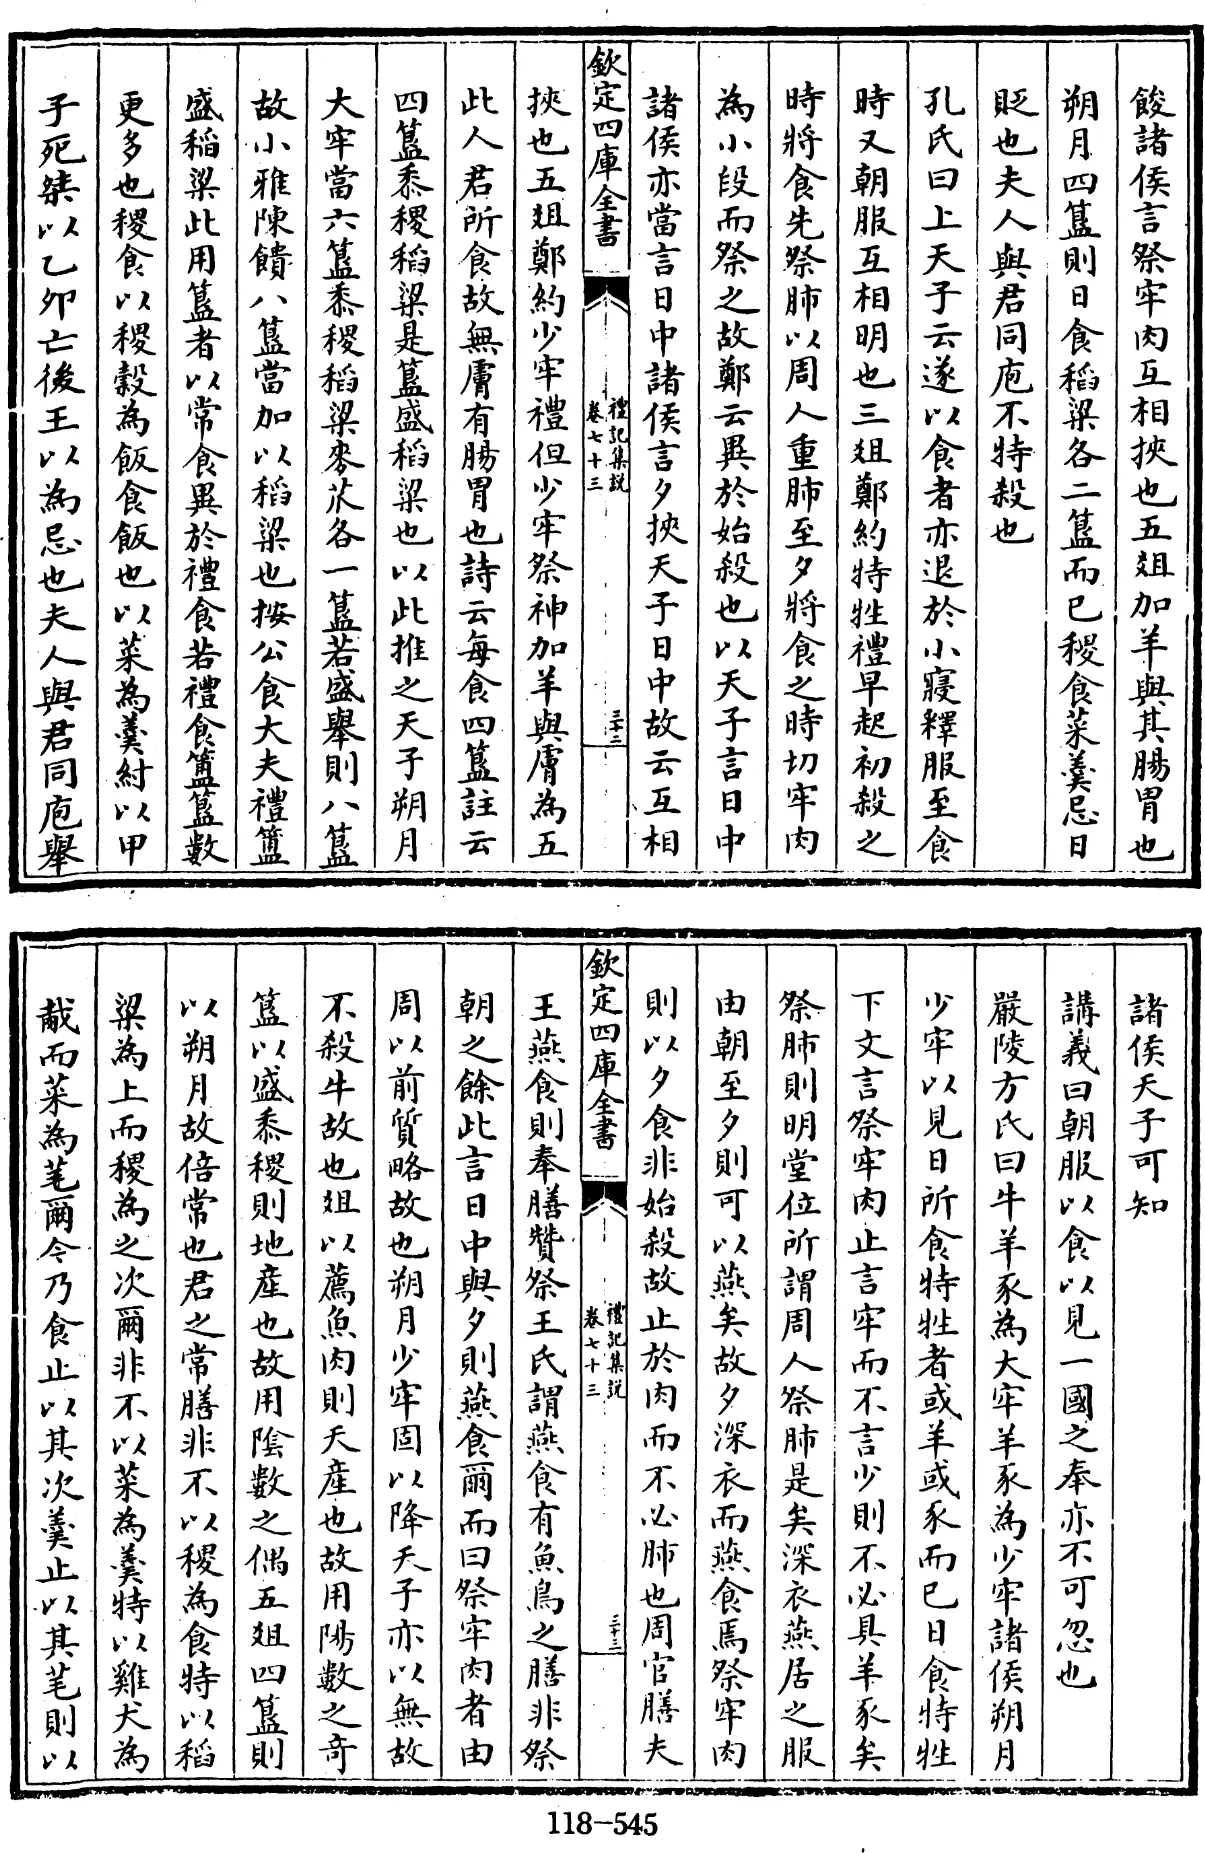 餕諸侯言祭牢肉互相挾也五俎加羊與其腸胃也
朔月四簋則日食稻粱各二簋而已稷食菜羮忌日
貶也夫人與君同庖不特殺也
孔氏曰上天子云遂以食者亦退於小寢釋服至食
時又朝服互相明也三俎鄭約特牲禮早起初殺之
時將食先祭肺以周人重肺至夕將食之時切牢肉
為小段而祭之故鄭云異於始殺也以天子言日中
諸侯亦當言日中諸侯言夕挾天子日中故云互相
欽定四庫全書
禮記集說
卷七十三
三十二
挾也五俎鄭約少牢禮但少牢祭神加羊與膚為五
此人君所食故無膚有腸胃也詩云每食四簋註云
四簋黍稷稻粱是簋盛稻粱也以此推之天子朔月
大牢當六簋黍稷稻粱麥苽各一簋若盛舉則八簋
故小雅陳饋八簋當加以稻粱也按公食大夫禮簠
盛稻粱此用簋者以常食異於禮食若禮食簠簋數
更多也稷食以稷穀為飯食飯也以菜為羮紂以甲
子死桀以乙卯亡後王以為忌也夫人與君同庖舉
諸侯天子可知
講義曰朝服以食以見一國之奉亦不可忽也
嚴陵方氏曰牛羊豕為大牢羊豕為少牢諸侯朔月
少牢以見日所食特牲者或羊或豕而已日食特牲
下文言祭牢肉止言牢而不言少則不必具羊豕矣
祭肺則明堂位所謂周人祭肺是矣深衣燕居之服
由朝至夕則可以燕矣故夕深衣而燕食焉祭牢肉
則以夕食非始殺故止於肉而不必肺也周官膳夫
欽定四庫全書
禮記集說
卷七十三
三十三
王燕食則奉膳贊祭王氏謂燕食有魚鳥之膳非祭
朝之餘此言日中與夕則燕食爾而曰祭牢肉者由
周以前質略故也朔月少牢固以降天子亦以無故
不殺牛故也俎以薦魚肉則天產也故用陽數之奇
簋以盛黍稷則地產也故用陰數之偶五俎四簋則
以朔月故倍常也君之常膳非不以稷為食特以稻
粱為上而稷為之次爾非不以菜為羮特以雞犬為
胾而菜為芼爾今乃食止以其次羮止以其芼則以
118-545